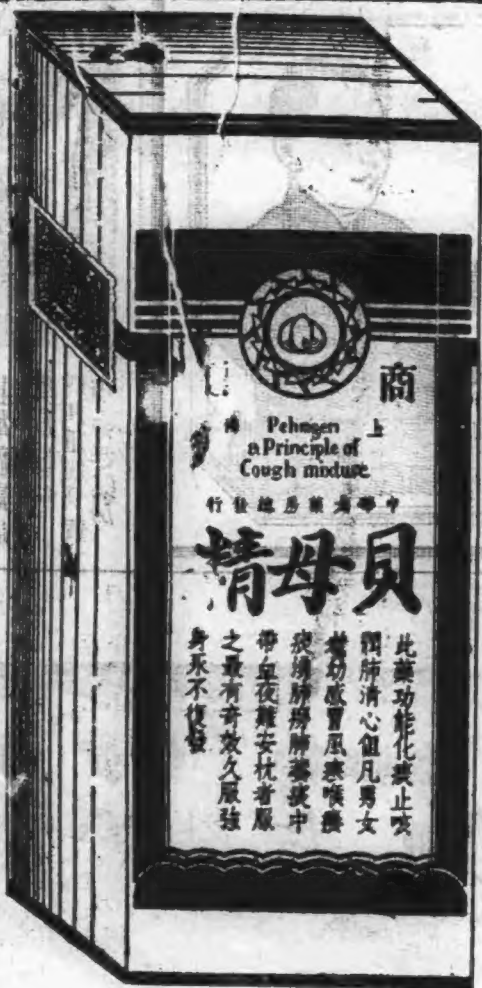 商
上海
Pehmgen
a Principle of
Cough mixture
藥房總發行
貝母精
此藥功能化痰止咳
潤肺清心但凡男女
幼感冒風痰喉癢
痰湧肺癆肺萎痰中
帶血夜難安枕者服
之最有奇效久服強
身永不復發